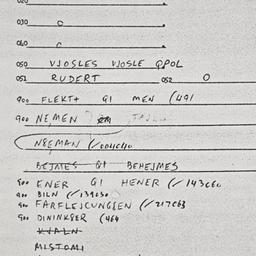 020
030 0
040 0
050 VJOSLES VJOSLE QPOL
051 RUDERT 052 0
900 FLEKT+ GI MEN (491
900 NEMEN
NEEMAN (/004640
BEJMES GI BEHEJMES
900 ENER GI HENER (/143660
900 BILN (/139050
900 FARFLEJCUNGIEN (/217063
900 DININKIER (464
KJALN
MISTOMI